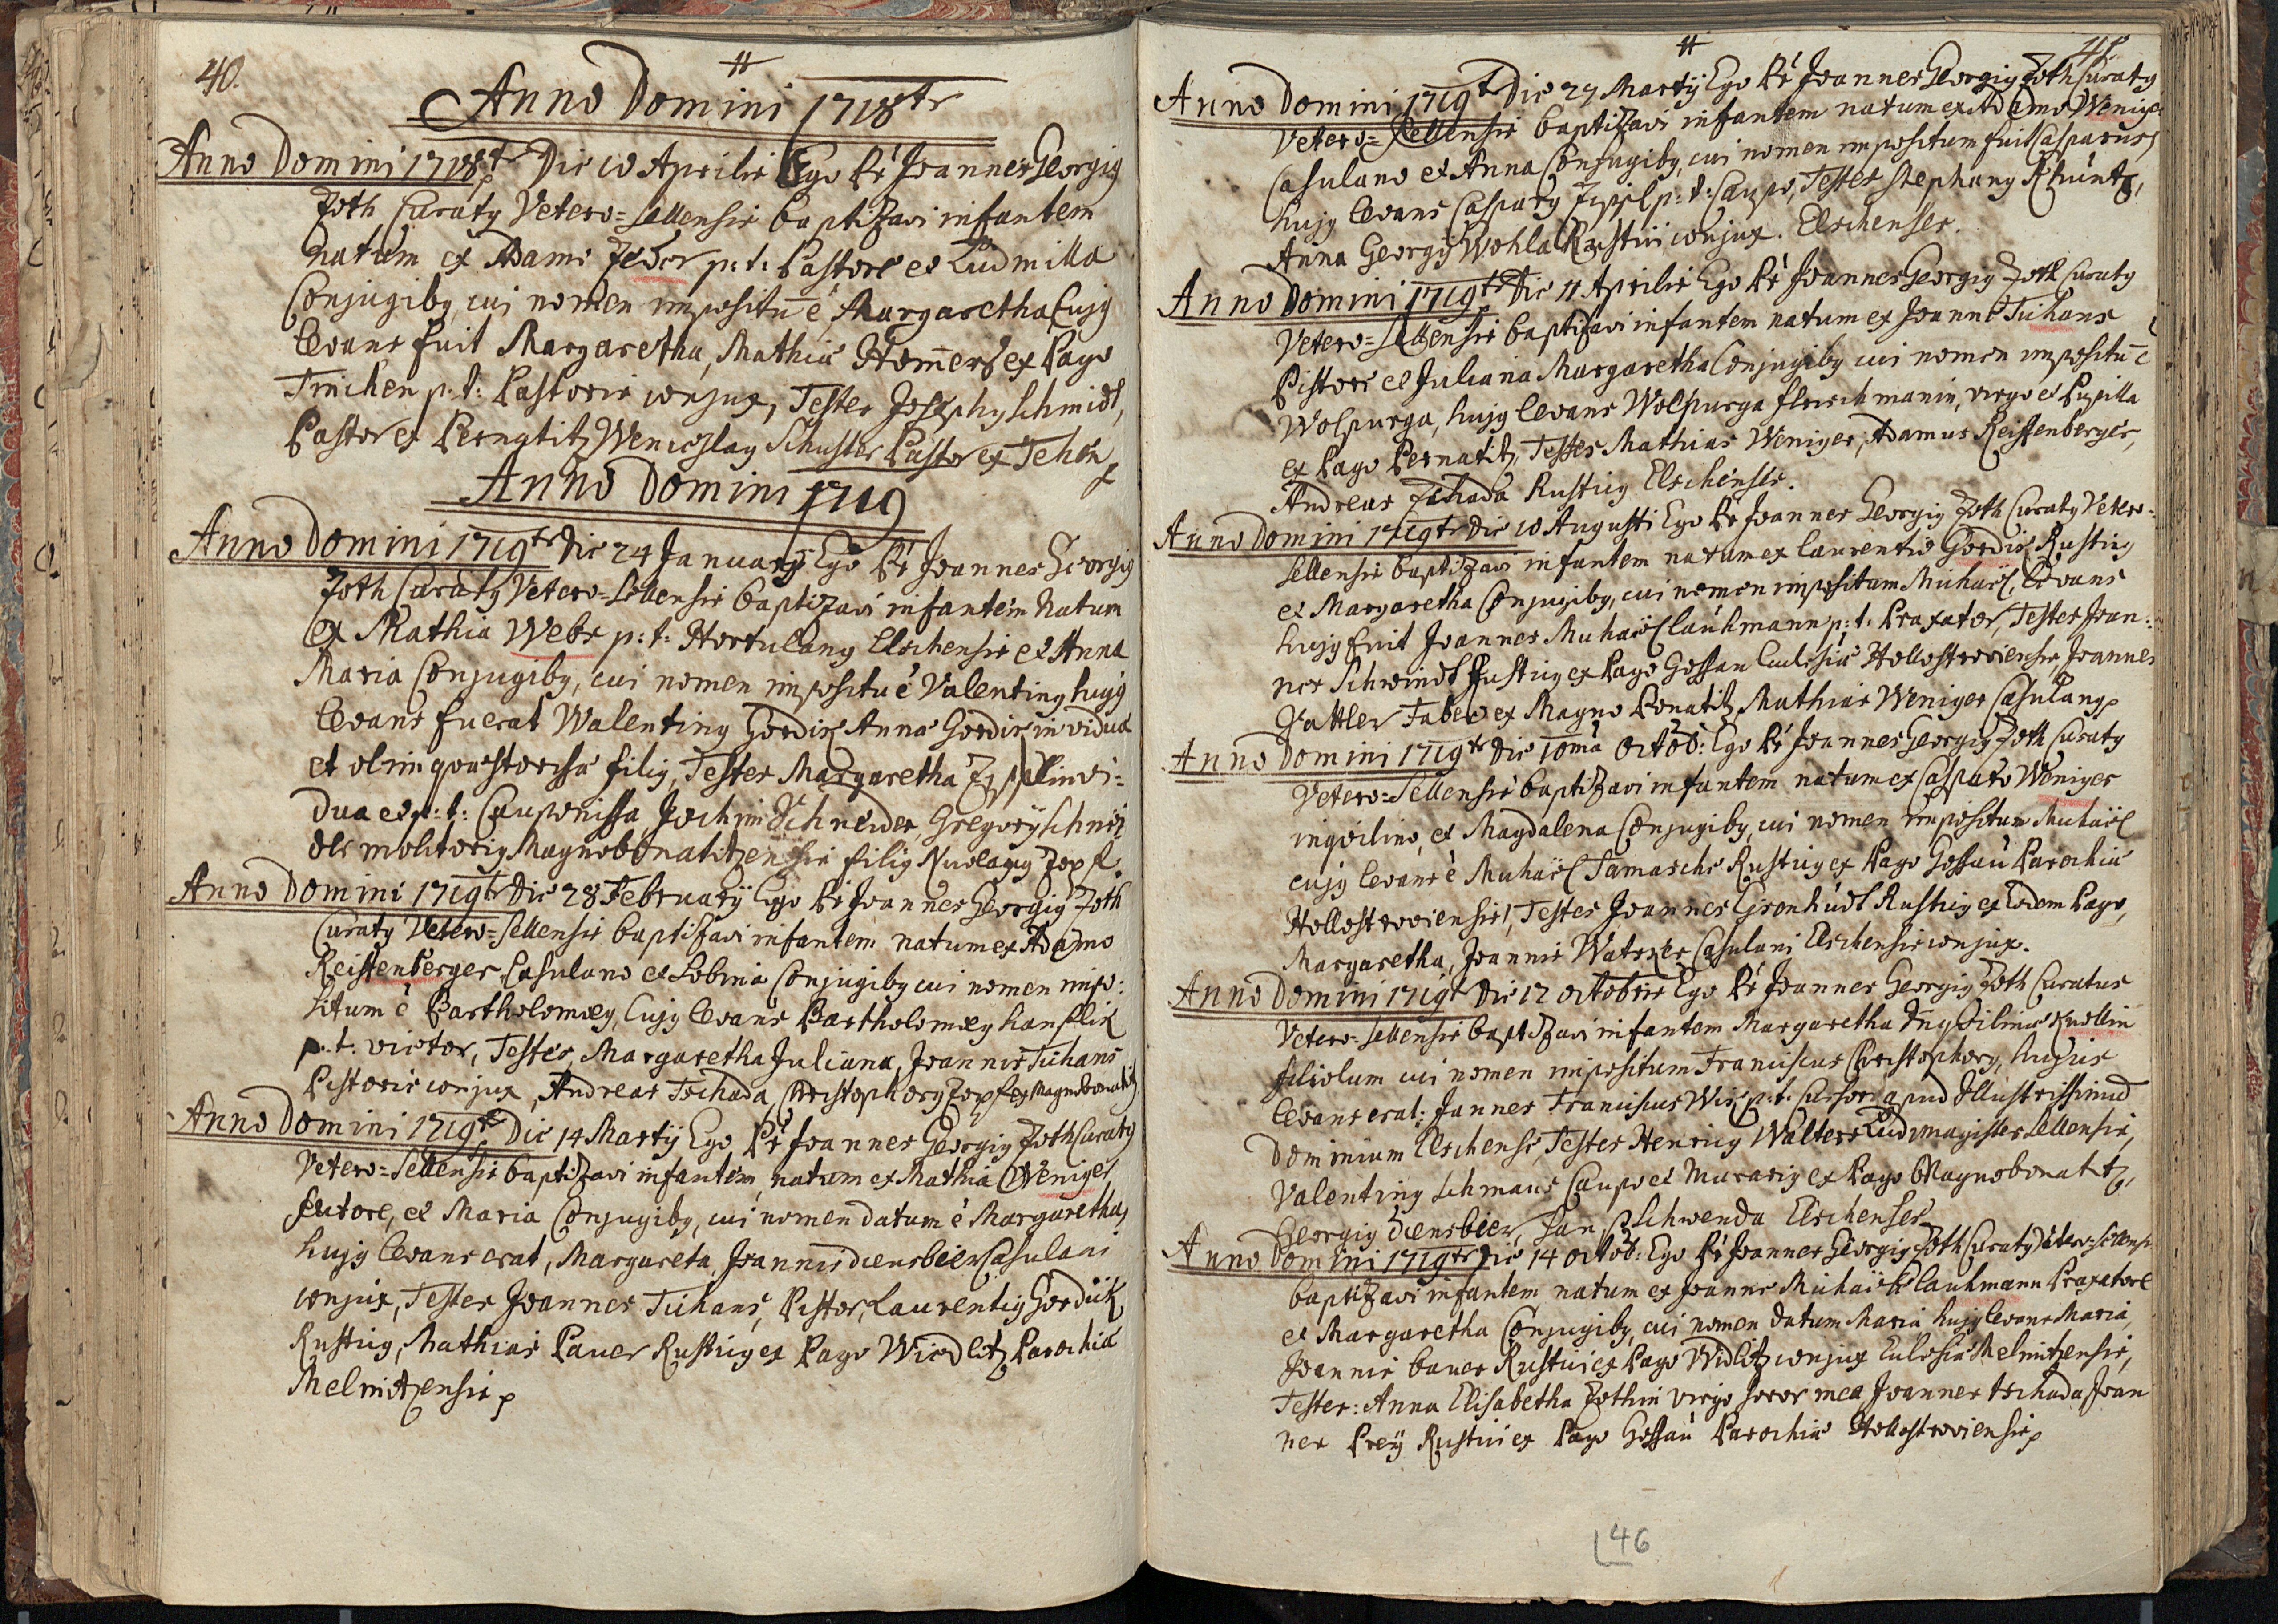 40.
#
Anno Domini 1718tr
Anno Domini 1718tr Die 10 Aprilis Ego Pr Joannes Georgiy
Zoth Curaty Vetero=Sellensis baptizavi infantem
natum ex Adamo Feder p: t: Pastore et Ludmilla
Conjugiby, cui nomen impositu e Margaretha Cujy
levans fuit Margaretha, Mathia Homers ex Pago
Trischen p: t: Pastoris conjux, Testes Josephy Schmidt,
Pastor ex Pernatitz Wenceslay Schuster Pastor ex Tehon
Anno Domini 1719
Anno Domini 1719tr Die 24 Januarij Ego Pr Joannes Georgiy
Zoth Curaty Vetero=Sellensis baptizavi infantem Natum
ex Mathia Webr p: t: Hortulany Elschensis et Anna
Maria Conjugiby, cui nomen impositu e Valentiny hujy
levans fuerat Walentiny Gordik Anna Gordikin vidua
et olim quaestorissa filiy, Testes Margaretha Zipplin vi=
dua et p: t: Cauponissa Jochim Schneider, Gregorij Schnei
der molitoriy Magnobonatitzensis filiy Nicolay Zopf.
Anno Domini 1719tr Die 28 Februarij Ego Pr Joannes Georgiy Zoth
Curaty Vetero=Sellensis baptizavi infantem natum ex Adamo
Reiffenberger Casulano et Sobina Conjugiby cui nomen impo:
situm e Bartholomey, Cujy levans Bartholomey hanslik
p. t. vietor, Testes Margaretha Juliana, Joannis Tichans
Pistoris conjux, Andreas Tschada, Christophory Zopf ex Magnobonatitz
Anno Domini 1719tr Die 14 Martij Ego Pr Joannes Georgiy Zoth Curaty
Vetero=Sellensis baptizavi infantem, natum ex Mathia Weniger
sutore, et Maria Conjugiby, cui nomen datum e Margaretha,
hujy levans erat, Margareta, Joannis diensbier Casulani
conjux, Testes Joannes Tichans, Pistor, Laurentiy Gordik
Rusticy, Mathias Pauer Rusticy ex Pago Wiedlitz Parochia
Melnitzensis
#
41
Anno Domini 1719tr Die 27 Martij Ego Pr Joannes Georgiy Zoth Curaty
Vetero=Sellensis baptizavi infantem natum ex Adamo Weniger
Casulano et Anna Conjugiby, cui nomen impositum fuit Casparus,
hujy levans Caspary Zippl p: t: Caupo, Testes Stephany Khuntz,
Anna Georgij Wohla Rustici conjux. Elschenses.
Anno Domini 1719tr Die 11 Aprilis Ego Pr Joannes Georgiy Zoth Curaty
Vetero=Sellensis baptizavi infantem natum ex Joanne Tichans
Pistore et Juliana Margaretha Conjugiby cui nomen impositu e
Wolpurga, hujy levans Wolpurga fleischmanin, virgo et Pupilla
ex Pago Pernatitz, Testes Mathias Weniger, Adamus Reiffenberger,
Andreas Zchada Rusticy Elschenses.
Anno Domini 1719tr Die 10 Augusti Ego Pr Joannes Georgiy Zoth Curaty Vetero=
Sellensis baptizavi infantem natum ex Laurentio Gordik Rusticy
et Margaretha Conjugiby, cui nomen impositum Michael, levans
hujy fuit Joannes Michael lauhmann p: t. Praxator, Testes Joan:
nes Schwindt Rusticy ex Pago Gossau Ecclesia Hollostroviensis, Joannes
Vattler Faber ex Magno Bonatitz, Mathias Weniger Casulany
Anno Domini 1719tr Die 10ma Octob: Ego Pr Joannes Georgiy Zoth Curaty
Vetero=Sellensis baptizavi infantem natum ex Casparo Weniger
inquilino, et Magdalena Conjugiby, cui nomen impositum Michael
cujy levans e Michael Tamaschs Rusticy ex Pago Gossau Parochia
Hollostroviensis, Testes Joannes Gronhudt Rusticy ex Eodem Pago,
Margaretha, Joannis Watzker Casulani Elschensis conjux.
Anno Domini 1719tr Die 12 octobris Ego Pr Joannes Georgiy Zoth Curatus
Vetero=Sellensis baptizavi infantem Margaretha Inquilina Knollin
filiolum cui nomen impositum Franciscus Christophory, hujus
levans erat: Jannes Franciscus Wis, p: t. Cursor apud Illustrissimum
Dominium Elschense, Testes Henricy Walters Ludimagister Sellensis,
Valentiny Schmaus Caupo et Murariy ex Pago Magnobonatitz,
Georgiy diensbier, Jan Schwenda Elschenses
Anno Domini 1719tr Die 14 octob: Ego Pr Joannes Georgiy Zoth Curaty Vetero=Sellensis
baptizavi infantem natum ex Joanne Michael lauhmann Praxatore
et Margaretha Conjugiby, cui nomen datum Maria hujy levans Maria,
Joannis bauer Rustici ex Pago Widlitz conjux Ecclesia Melnitzensis,
Testes: Anna Elisabetha Zothin virgo soror mea, Joannes tschada, Joan
nes Preÿ Rustici ex Pago Gossau Parochia Hollostroviensis
46